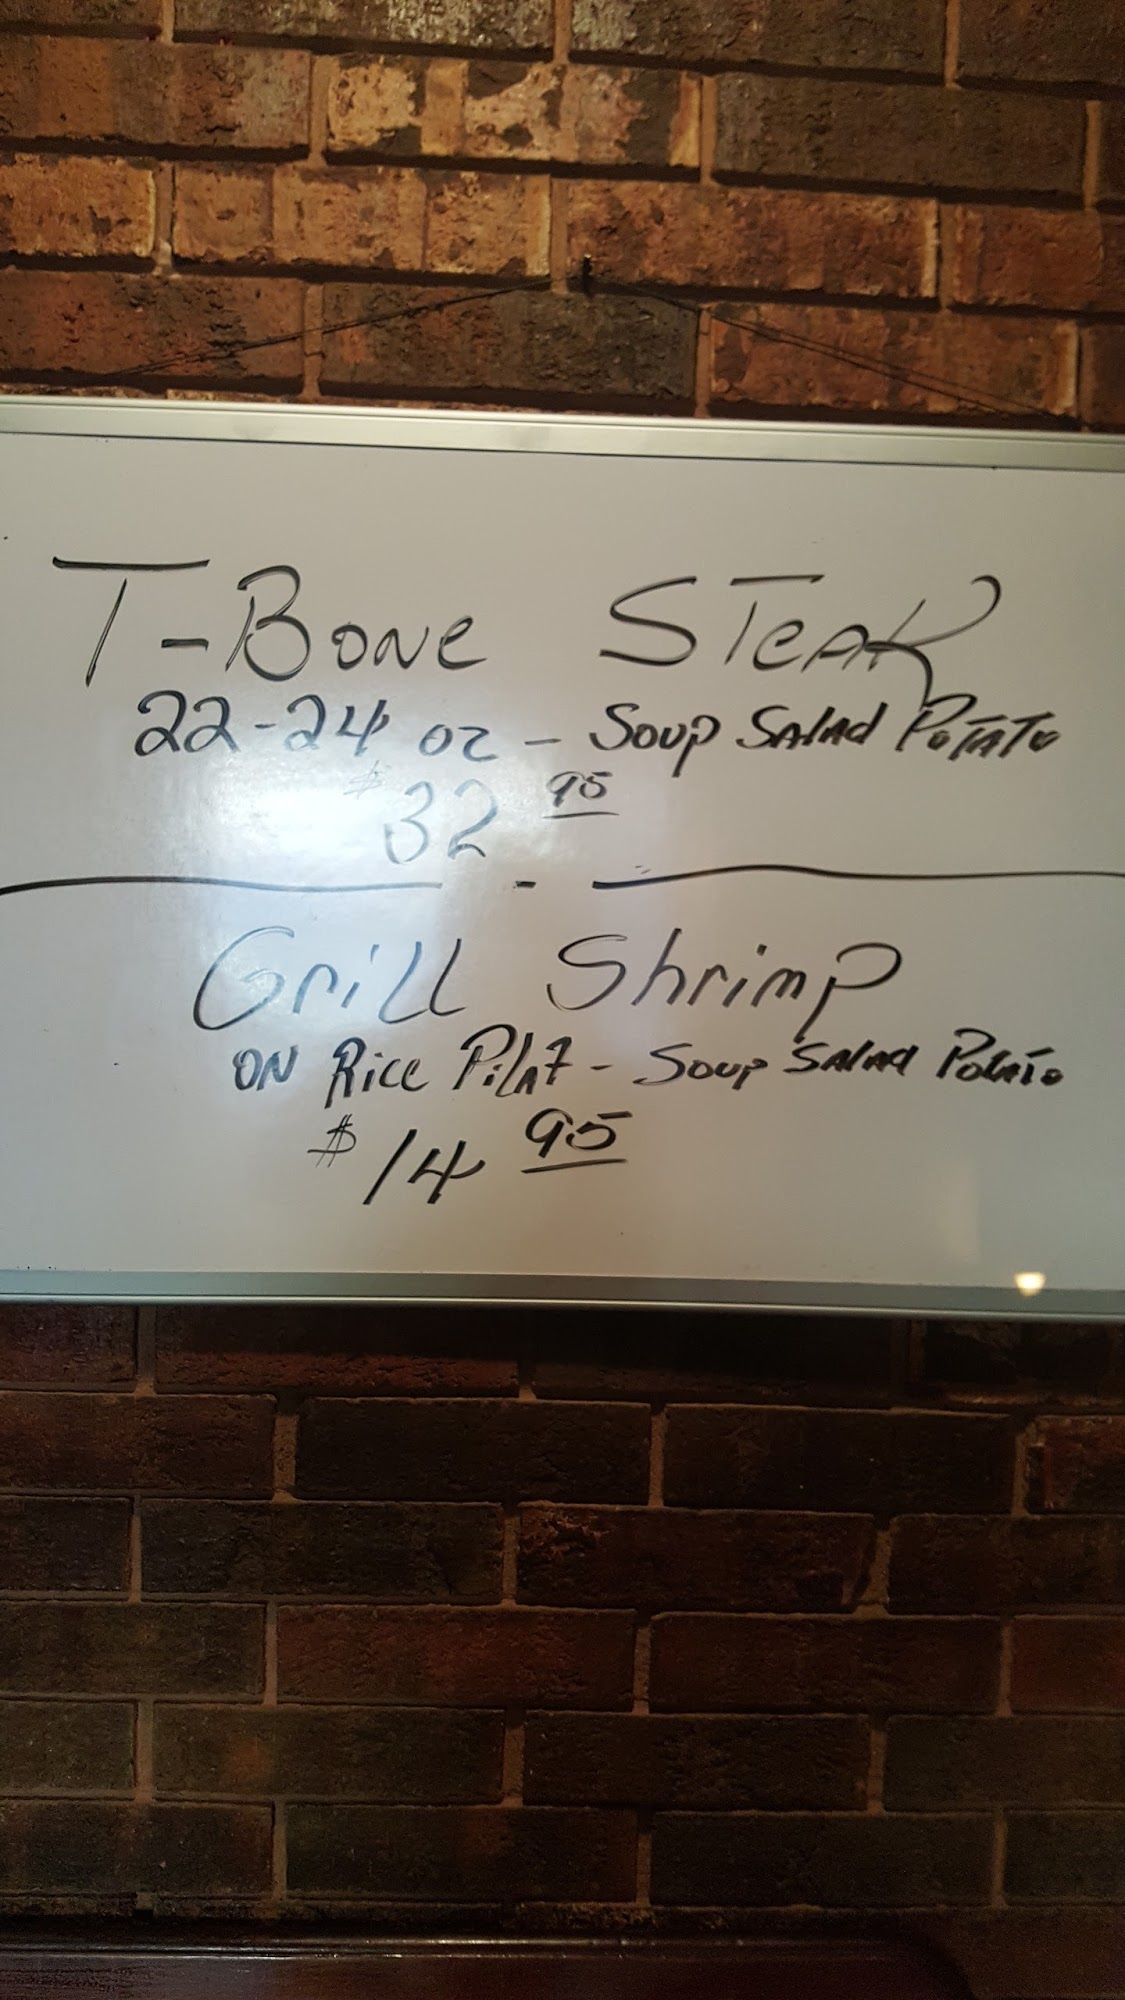 T-Bone STeAK
22-24 oz - Soup Salad PoTATo
$32 95
Grill Shrimp
ON Rice Pilaf - Soup Salad Potato
$14 95